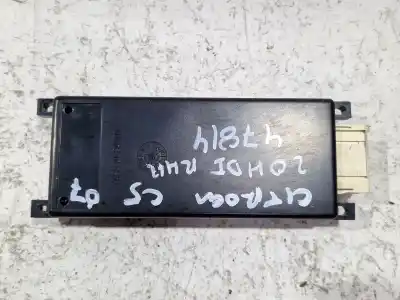 CITROEN C5 07
2.0 HDI RHR
47814